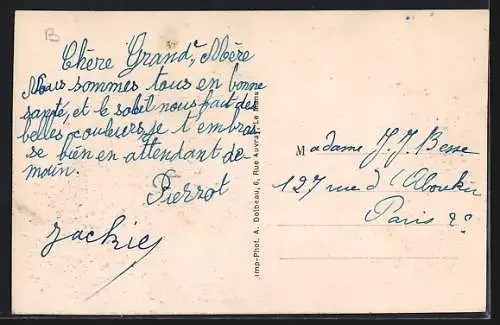 B
Chère Grand' Mère
Nous sommes tous en bonne
santé, et le soleil nous fait des
belles couleurs je t'embras
se bien en attendant de-
main.
Pierrot
Jackie
Imp-Phot. A. Dolbeau, 6, Rue Auvray, Le Mans
Madame J. J. Besse
127 rue d'Aboukir
Paris 2e